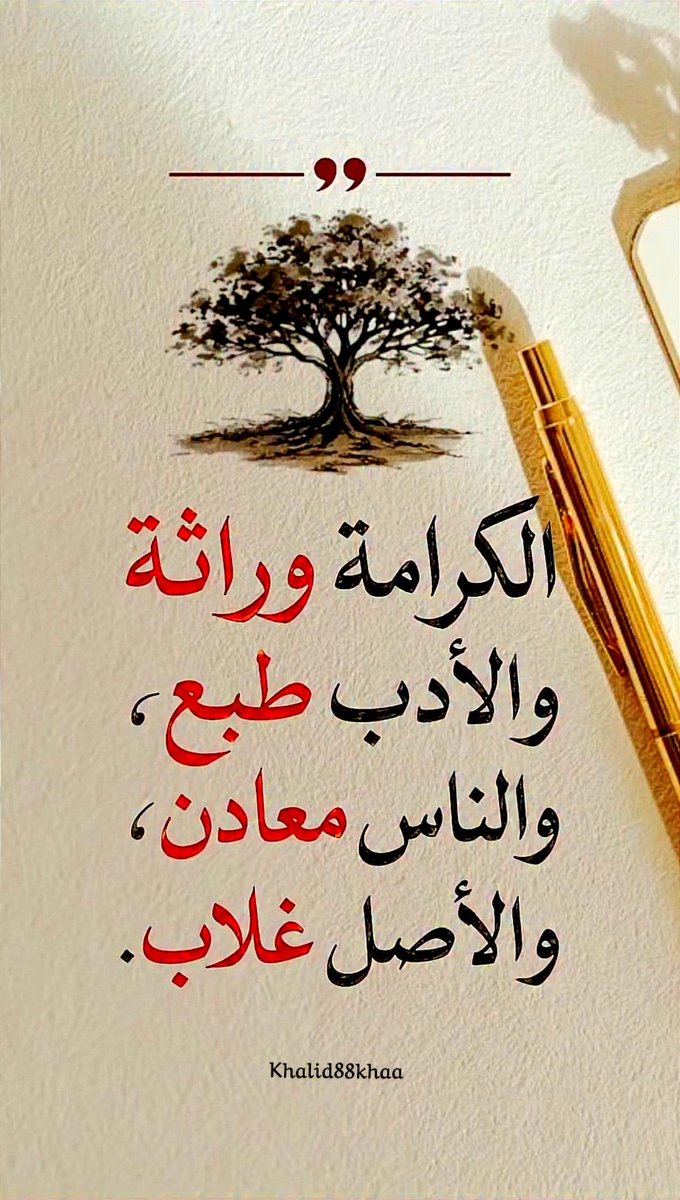 الكرامة وراثة
والأدب طبع ،
والناس معادن ،
والأصل غلاب.
Khalid88khaa